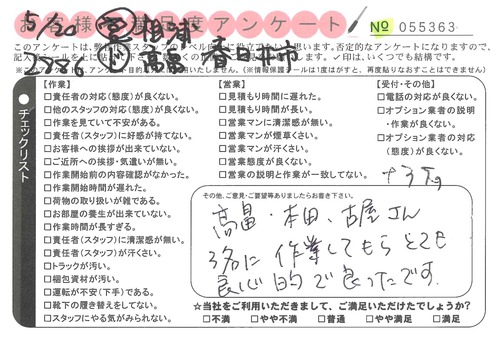 5/20
お客様満足度アンケート
№ 055363
春日井市
このアンケートは、弊社作業スタッフのレベル向上に役立てたいと思います。否定的なアンケートになりますので、
チェックリスト
【作業】
□責任者の対応(態度)が良くない。
□他のスタッフの対応(態度)が良くない。
□作業を見ていて不安がある。
□責任者(スタッフ)に好感が持てない。
□お客様への挨拶が出来ていない。
□ご近所への挨拶・気遣いが無い。
□作業開始前の内容確認がなかった。
□作業開始時間が遅れた。
□荷物の取り扱いが雑である。
□お部屋の養生が出来ていない。
□作業時間が長すぎる。
□責任者(スタッフ)に清潔感が無い。
□責任者(スタッフ)が汗くさい。
□トラックが汚い。
□梱包資材が汚い。
□運転が不安(下手)である。
□靴下の履き替えをしてない。
□スタッフにやる気がみられない。
【営業】
□見積もり時間に遅れた。
□見積もり時間が長い。
□営業マンに清潔感が無い。
□営業マンが煙草くさい。
□営業マンが汗くさい。
□営業態度が良くない。
□営業の説明と作業が一致してない。
【受付・その他】
□電話の対応が良くない。
□オプション業者の説明
・作業が良くない。
□オプション業者の対応
(態度)が良くない。
その他、ご意見・ご要望等ありましたらお書き下さい。
高畠・本田、古屋さん
3名に作業してもらとても
良心的で良ったです。
☆当社をご利用いただきまして、ご満足いただけたでしょうか?
□不満 □やや不満 □普通 □やや満足 □満足